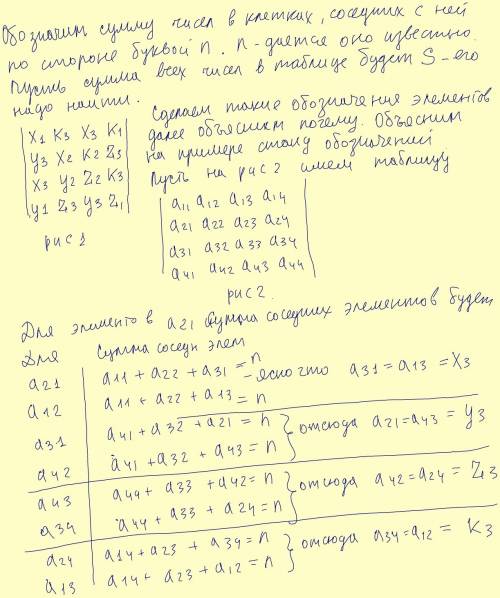 Обозначим сумму чисел в клетках, соседних с ней
по стороне буквой n. n-дается оно известно.
Пусть сумма всех чисел в таблице будет S-его
надо найти.
Сделаем такие обозначения элементов
далее объясним почему. Объясним
на примере смысл обозначений
Пусть на рис 2 имеем таблицу
x1 k3 x3 k1
y3 x2 k2 z3
x3 y2 z2 k3
y1 z3 y3 z1
рис 1
a11 a12 a13 a14
a21 a22 a23 a24
a31 a32 a33 a34
a41 a42 a43 a44
рис 2.
Для элементов a21 сумма соседних элементов будет
Для сумма соседн элем
a21 a11 + a22 + a31 = n
- ясно что a31 = a13 = x3
a12 a11 + a22 + a13 = n
a31 a41 + a32 + a21 = n
отсюда a21 = a43 = y3
a42 a41 + a32 + a43 = n
a43 a44 + a33 + a42 = n
отсюда a42 = a24 = z3
a34 a44 + a33 + a24 = n
a24 a14 + a23 + a34 = n
отсюда a34 = a12 = k3
a13 a14 + a23 + a12 = n